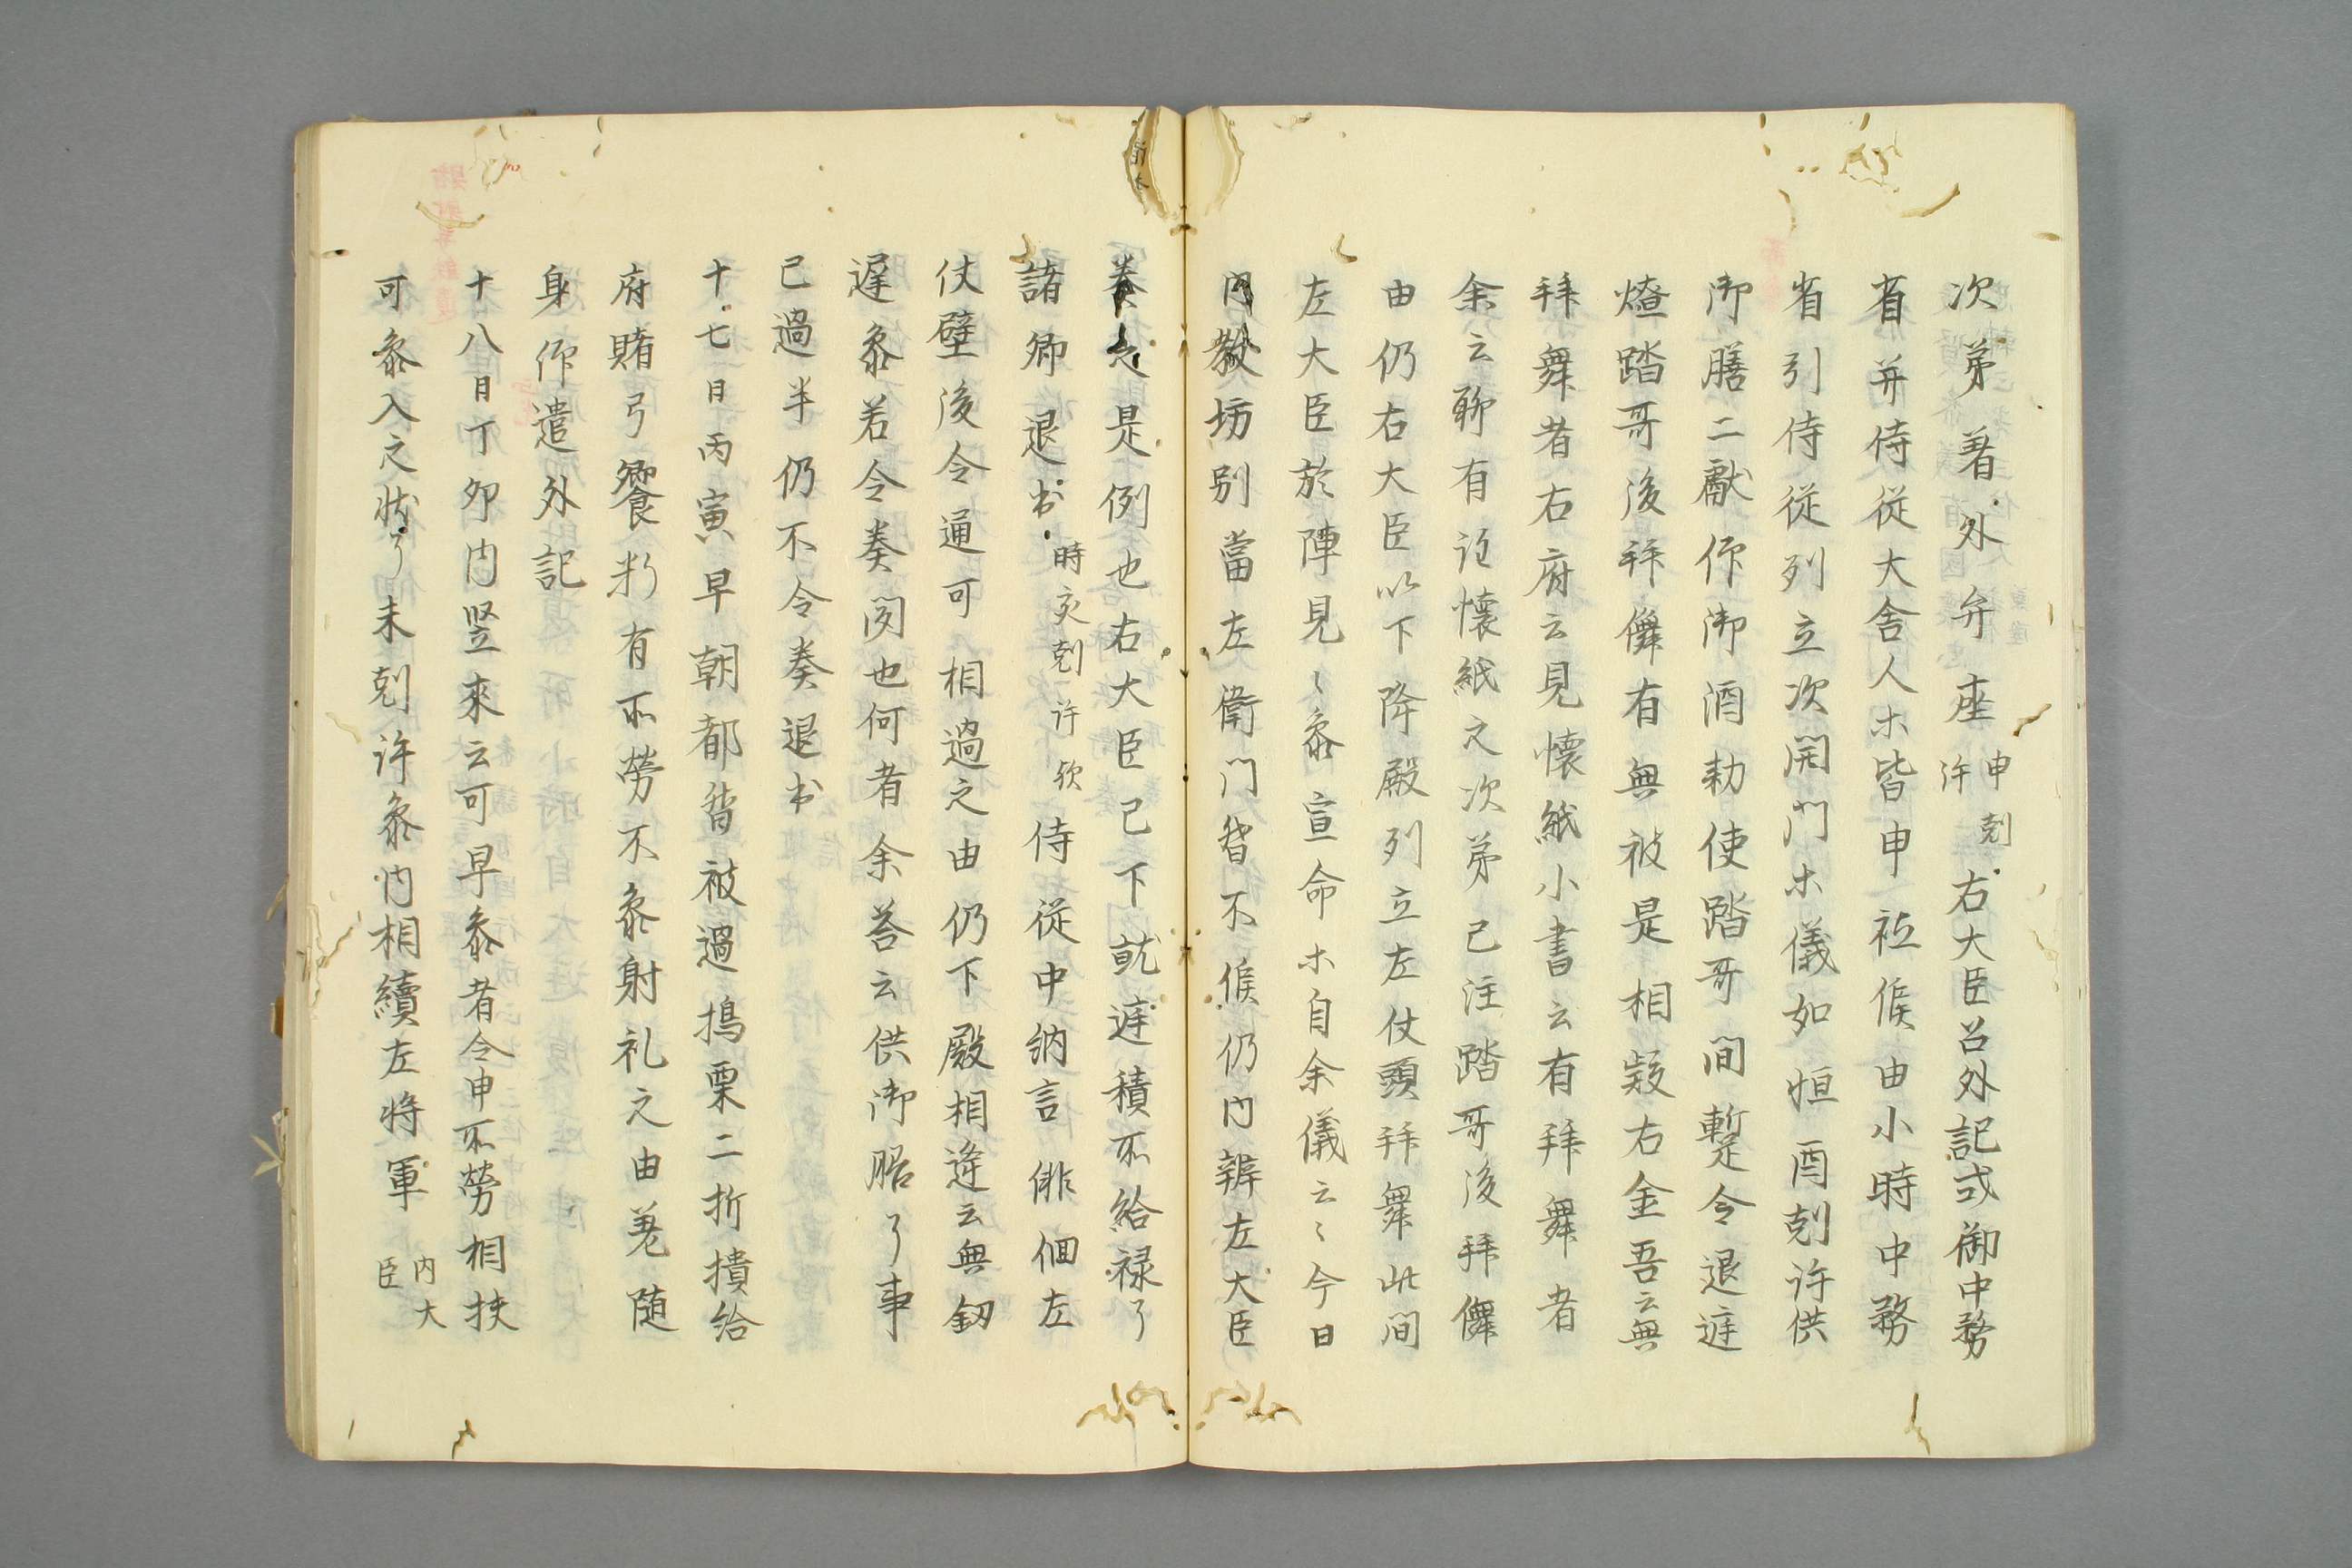 次第着外弁座申剋許右大臣召外記或御中務
省并侍従大舎人ホ皆申祗候由小時中務
省引侍従列立次開門ホ儀如恒酉剋許供
御膳二獻仰御酒勅使踏哥間蹔令退逹
燈踏哥後拜儛有無被是相疑右金吾云無
拜舞者右府云見懐紙小書云有拜舞者
余云聊有注懐紙之次第已注踏哥後拜儛
由仍右大臣以下降殿列立左仗頭拜舞此間
左大臣於陣見〻叅宣命ホ自余儀云〻今日
内教坊別當左衛門督不候仍内辨左大臣
奏之是例也右大臣已下就逹積所給禄了
諸卿退出時亥剋許歟侍従中納言俳佪左
仗壁後令通可相過之由仍下殿相逢云無釼
遅叅若令奏聞也何者余荅云供御膳了事
已過半仍不令奏退出
十七日丙寅早朝都督被過搗栗二折樻給
府賭弓饗料有所勞不叅射礼之由差随
身仰遣外記
十八日丁夘内竪來云可早叅者令申所勞相扶
可叅入之状了未剋許叅内相續左将軍内大臣